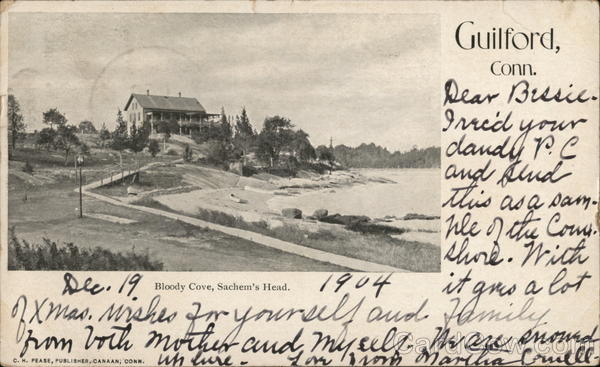 Guilford,
Conn.
Dear Bessie.
I rec'd your
dandy P.C
and send
this as a sam-
ple of the Conn
shore. With
it goes a lot
Dec. 19
Bloody Cove, Sachem's Head.
1904
of Xmas. wishes for yourself and family
from both Mother and Myself. We are snowed
up here. Love from Martha Cornell
C. H. PEASE, PUBLISHER, CANAAN, CONN.
CardCow.com